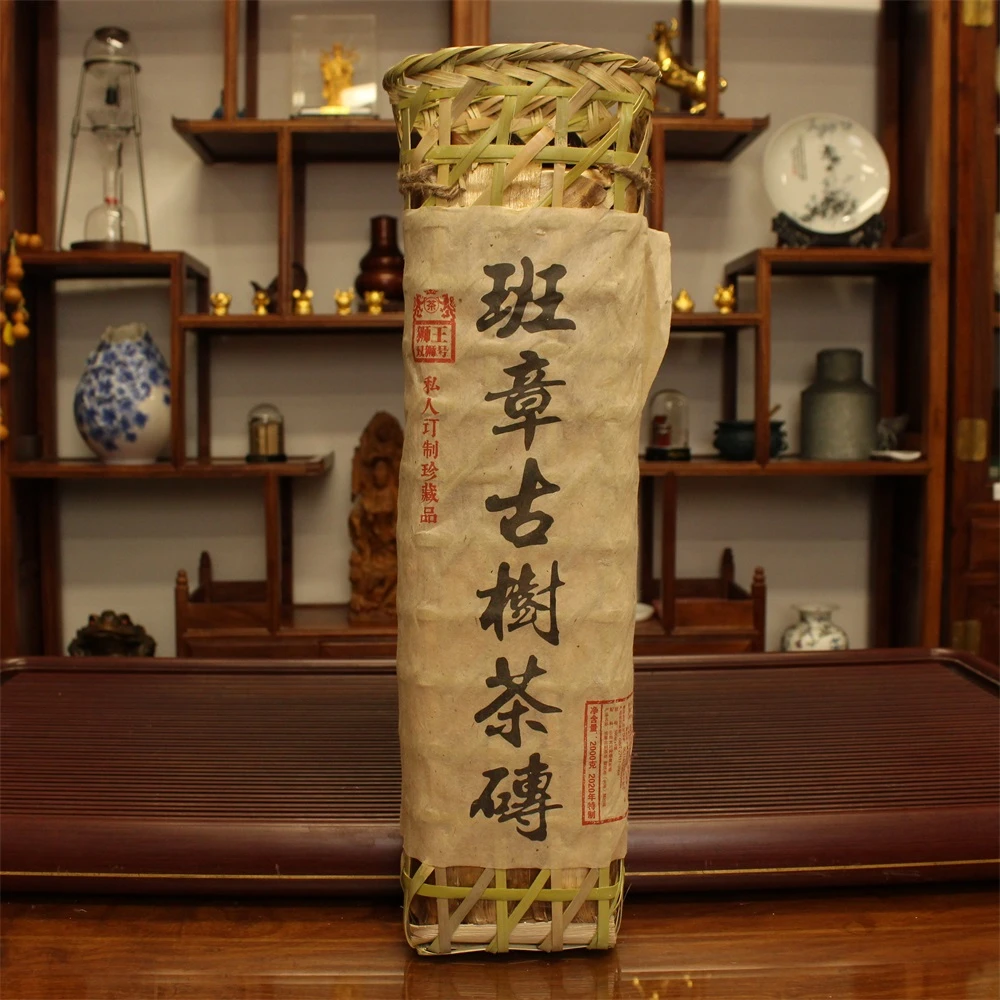 班章古樹茶磚
茶
狮王
双狮号
私人订制珍藏品
净含量：2000克 2020年特制